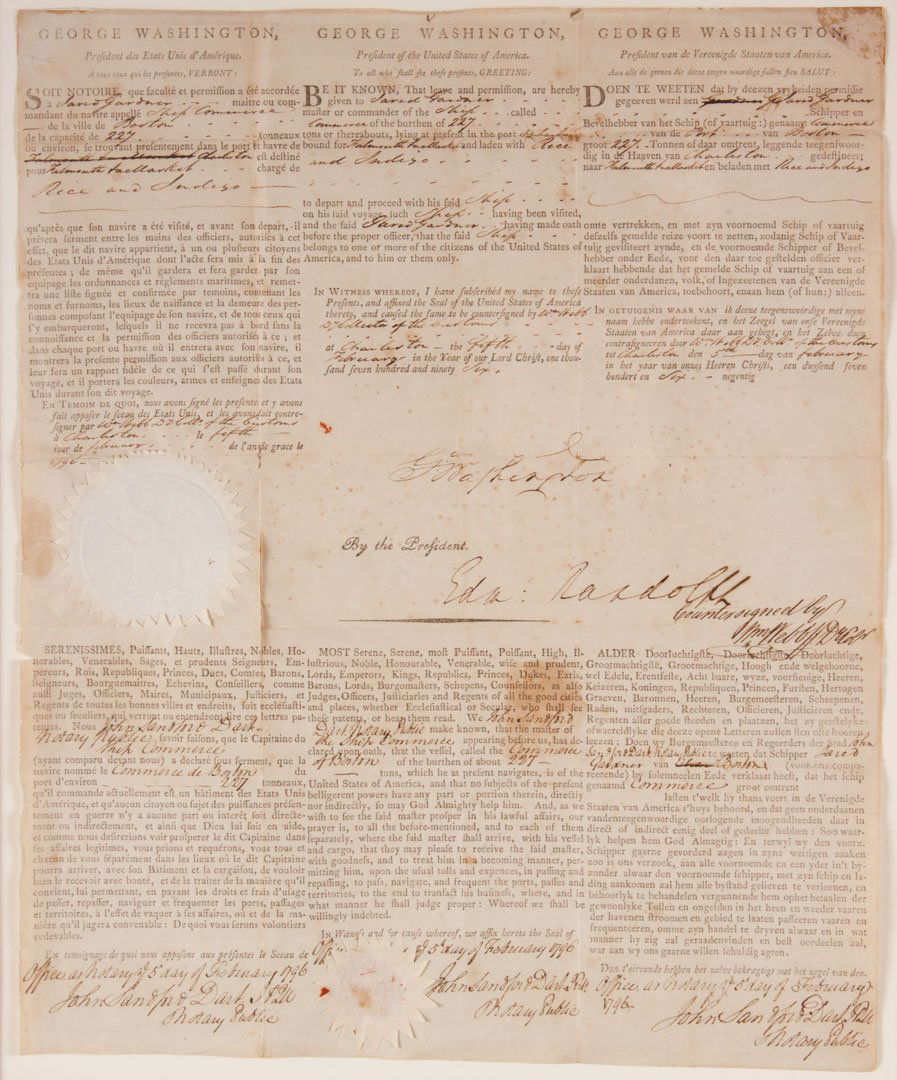 GEORGE WASHINGTON,
President des Etats Unis d'Amérique.
A tous ceux qui les presentes, VERRONT:
SOIT NOTOIRE, que faculté et permission a été accordée
à Jared Gardner maitre ou com-
mandant du navire appellé Ship Commerce
de la ville de Boston
de la capacité de 227 tonneaux
ou environ, se trouvant présentement dans le port et havre de
Charleston est destiné
pour Falmouth &a Market chargé de
Rice and Indigo
qu'après que son navire a été visité, et avant son depart, il
prêtera serment entre les mains des officiers, autorisés à cet
effet, que le dit navire appartient, à un ou plusieurs citoyens
des Etats Unis d'Amérique dont l'acte sera mis à la fin des
présentes; de même qu'il gardera et fera garder par son
equipage les ordonnances et réglements maritimes, et remet-
tra une liste signée et confirmée par temoins, contenant les
noms et surnoms, les lieux de naissance et la demeure des per-
sonnes composant l'equipage de son navire, et de tous ceux qui
s'y embarqueront, lesquels il ne recevra pas à bord sans la
connoissance et la permission des officiers autorisés à ce; et
dans chaque port ou havre où il entrera avec son navire, il
montrera la presente permission aux officiers autorisés à ce, et
leur fera un rapport fidèle de ce qui s'est passé durant son
voyage, et il portera les couleurs, armes et enseignes des Etats
Unis durant son dit voyage.
EN TEMOIN DE QUOI, nous avons signé les presentes et y avons
fait apposer le sceau des Etats Unis, et les avons fait contre-
signer par Wm Hebb D Coll. of the Customs
à Charleston le fifth
jour de february de l'an de grace le
1796
GEORGE WASHINGTON,
President of the United States of America.
To all who shall see these presents, GREETING:
BE IT KNOWN, That leave and permission, are hereby
given to Jared Gardner
master or commander of the Ship called
Commerce of the burthen of 227
tons or thereabouts, lying at present in the port of Charleston
bound for Falmouth &a Market and laden with Rice
and Indigo
to depart and proceed with his said Ship
on his said voyage, such Ship having been visited,
and the said Jared Gardner having made oath
before the proper officer, that the said Ship
belongs to one or more of the citizens of the United States of
America, and to him or them only.
IN WITNESS WHEREOF, I have subscribed my name to these
Presents, and affixed the Seal of the United States of America
thereto, and caused the same to be countersigned by Wm Hebb
D. Collector of the Customs
at Charleston the fifth day of
February in the Year of our Lord Christ, one thou-
sand seven hundred and ninety Six.
GEORGE WASHINGTON,
President van de Vereenigde Staaten van America.
Aan alle de geenen die deeze teegen woordige sullen sien SALUT:
DOEN TE WEETEN dat by deezen vryheiden permissie
gegeeven werd aen Jared Gardner
Schipper en
Bevelhebber van het Schip (of vaartuig:) genaamt Commerce
van de Port van Boston
groot 227 Tonnen of daar omtrent, leggende teegenswoor-
dig in de Haaven van Charleston gedestineert
naar Falmouth &a Market en beladen met Rice and Indigo
omte vertrekken, en met zyn voornoemd Schip of vaartuig
deszelfs gemelde reize voort te zetten, zodanig Schip of Vaar-
tuig gevisiteert zynde, en de voornoemde Schipper of Bevel-
hebber onder Eede, voor den daar toe gestelden officier ver-
klaart hebbende dat het gemelde Schip of vaartuig aan een of
meerder onderdanen, volk, of Ingezeetenen van de Vereenigde
Staaten van America, toebehoort, enaan hem (of hun:) alleen.
IN GETUIGENIS WAAR VAN ik deeze teegenswoordige met myne
naam hebbe onderteekent, en het Zeegel van onze Vereenigde
Staaten van America daar aan gehegt, en het Zelve doen
contrasigneeren door Wm Hebb D Coll. of the Customs
tot Charleston den 5th dag van february
in het yaar van onzes Heeren Christi, een duysend seven
hondert en Six negentig
Go Washington
By the President.
Edm: Randolph
Countersigned by
SERENISSIMES, Puissants, Haute, Illustres, Nobles, Ho-
norables, Venerables, Sages, et prudents Seigneurs, Em-
pereurs, Rois, Republiques, Princes, Ducs, Comtes, Barons,
Seigneurs, Bourguemaitres, Echevins, Conseillers, comme
aussi Juges, Officiers, Maires, Municipaux, Justiciers, et
Regents de toutes les bonnes villes et endroits, soit ecclésiasti-
ques ou seculiers, qui verront ou entendront lire ces lettres pa-
tentes. Nous John Sandford Dart
Notary Public savoir faisons, que le Capitaine du
Ship Commerce
(ayant comparu devant nous) a déclaré sous serment, que la
navire nommé le Commerce de Boston du
port d'environ 227 tonneaux
qu'il commande actuellement est un bâtiment des Etats Unis
d'Amérique, et qu'aucun citoyen ou sujet des puissances présen-
tement en guerre n'y a aucune part ou interêt soit directe-
ment ou indirectement, et ainsi que Dieu lui soit en aide,
et comme nous desirerions voir prosperer le dit Capitaine dans
ses affaires legitimes, vous prions et requérons, vous tous et
chacun de vous séparément dans les lieux où le dit Capitaine
pourra arriver, avec son Bâtiment et sa cargaison, de vouloir
bien le recevoir avec bonté, et de le traiter de la manière qu'il
convient, lui permettant, en payant les droits et frais d'usage
de passer, repasser, naviguer et frequenter les ports, passages
et territoires, à l'effet de vaquer à ses affaires, où et de la ma-
nière qu'il jugera convenable: De quoi vous serons volontiers
redevables.
En temoignage de quoi nous apposons aux présentes le Sceau de
Office, as Notary ye 5th day of February 1796
John Sandford Dart
Notary Public
MOST Serene, Serene, most Puissant, Puissant, High, Il-
lustrious, Noble, Honourable, Venerable, wise and prudent,
Lords, Emperors, Kings, Republics, Princes, Dukes, Earls,
Barons, Lords, Burgomasters, Schepens, Counsellors, as also
Judges, Officers, Justiciaries and Regents of all the good cities
and places, whether Ecclesiastical or Secular, who shall see
these patents, or hear them read. We John Sandford
Dart Notary Public make known, that the master of
the Ship Commerce appearing before us, has de-
clared upon oath, that the vessel, called the Commerce
of Boston of the burthen of about 227
tons, which he at present navigates, is of the
United States of America, and that no subjects of the present
belligerent powers have any part or portion therein, directly
nor indirectly, so may God Almighty help him. And, as we
wish to see the said master prosper in his lawful affairs, our
prayer is, to all the before-mentioned, and to each of them
separately, where the said master shall arrive, with his vessel
and cargo, that they may please to receive the said master,
with goodness, and to treat him in a becoming manner, per-
mitting him, upon the usual tolls and expences, in passing and
repassing, to pass, navigate, and frequent the ports, passes and
territories, to the end to transact his business, where, and in
what manner he shall judge proper: Whereof we shall be
willingly indebted.
In Witness and for cause whereof, we affix hereto the Seal of
Office ye 5th day of February 1796
John Sandford Dart
Notary Public
ALDER Doorluchtigste, Doorluchtigste, Doorluchtige,
Grootmachtigste, Grootmachtige, Hoogh ende welgehoorne,
wel Edele, Erentfeste, Acht baare, wyze, voorsienige, Heeren,
Keizeren, Koningen, Republiquen, Princen, Fursten, Hertogen
Graeven, Baronnen, Heeren, Burgemeesteren, Scheepenen,
Raden, mitsgaders, Rechteren, Officieren, Justicieren ende
Regenten aller goede steeden en plaatsen, het zy geestelyke
ofwaereldlyke die deeze opene Letteren zullen sien ofte hooren
leezen: Doen wy Burgemeesteren en Regeerders der Stad John
Sandford Dart Notary Public weeten, dat Schipper Jared
Gardner van Boston (voor ons: compa-
reerende) by solemneelen Eede verklaart heeft, dat het schip
genaamd Commerce groot omtrent
lasten t'welk hy thans voert in de Verenigde
Staaten van America t'huys behoord, en dat geen onderdaanen
vandenteegenwoordige oorlogende moogendheeden daar in
direct of indirect eenig deel of gedeelte hebben: Soo waar-
lyk helpen hem God Almagtig: En terwyl wy den voorz.
Schipper gaarne gevorderd zagen in zyne wettigen zaaken
zoo is ons verzoek, aan alle voornoemde en een yder in't by-
zonder alwaar den voornoemde schipper, met zyn schip en la-
ading aankomen zal hem alle bystand gelieven te verleenen, en
behoorlyk te behandelen vergunnende hem ophet betaalen der
gewoonlyke Tollen en ongelden in het heen en weeder vaaren
der havenen stroomen en gebied te laaten passeeren vaaren en
frequenteeren, omme zyn handel te dryven alwaar en in wat
manner hy zig zal geraadenvinden en best oordeelen zal,
waar aan wy ons gaarne willen schuldig agten.
Des t'oirconde hebben het zelve bekragtigt met het zegel van den.
Office, as Notary ye 5th day of February
1796
John Sandford Dart
Notary Public